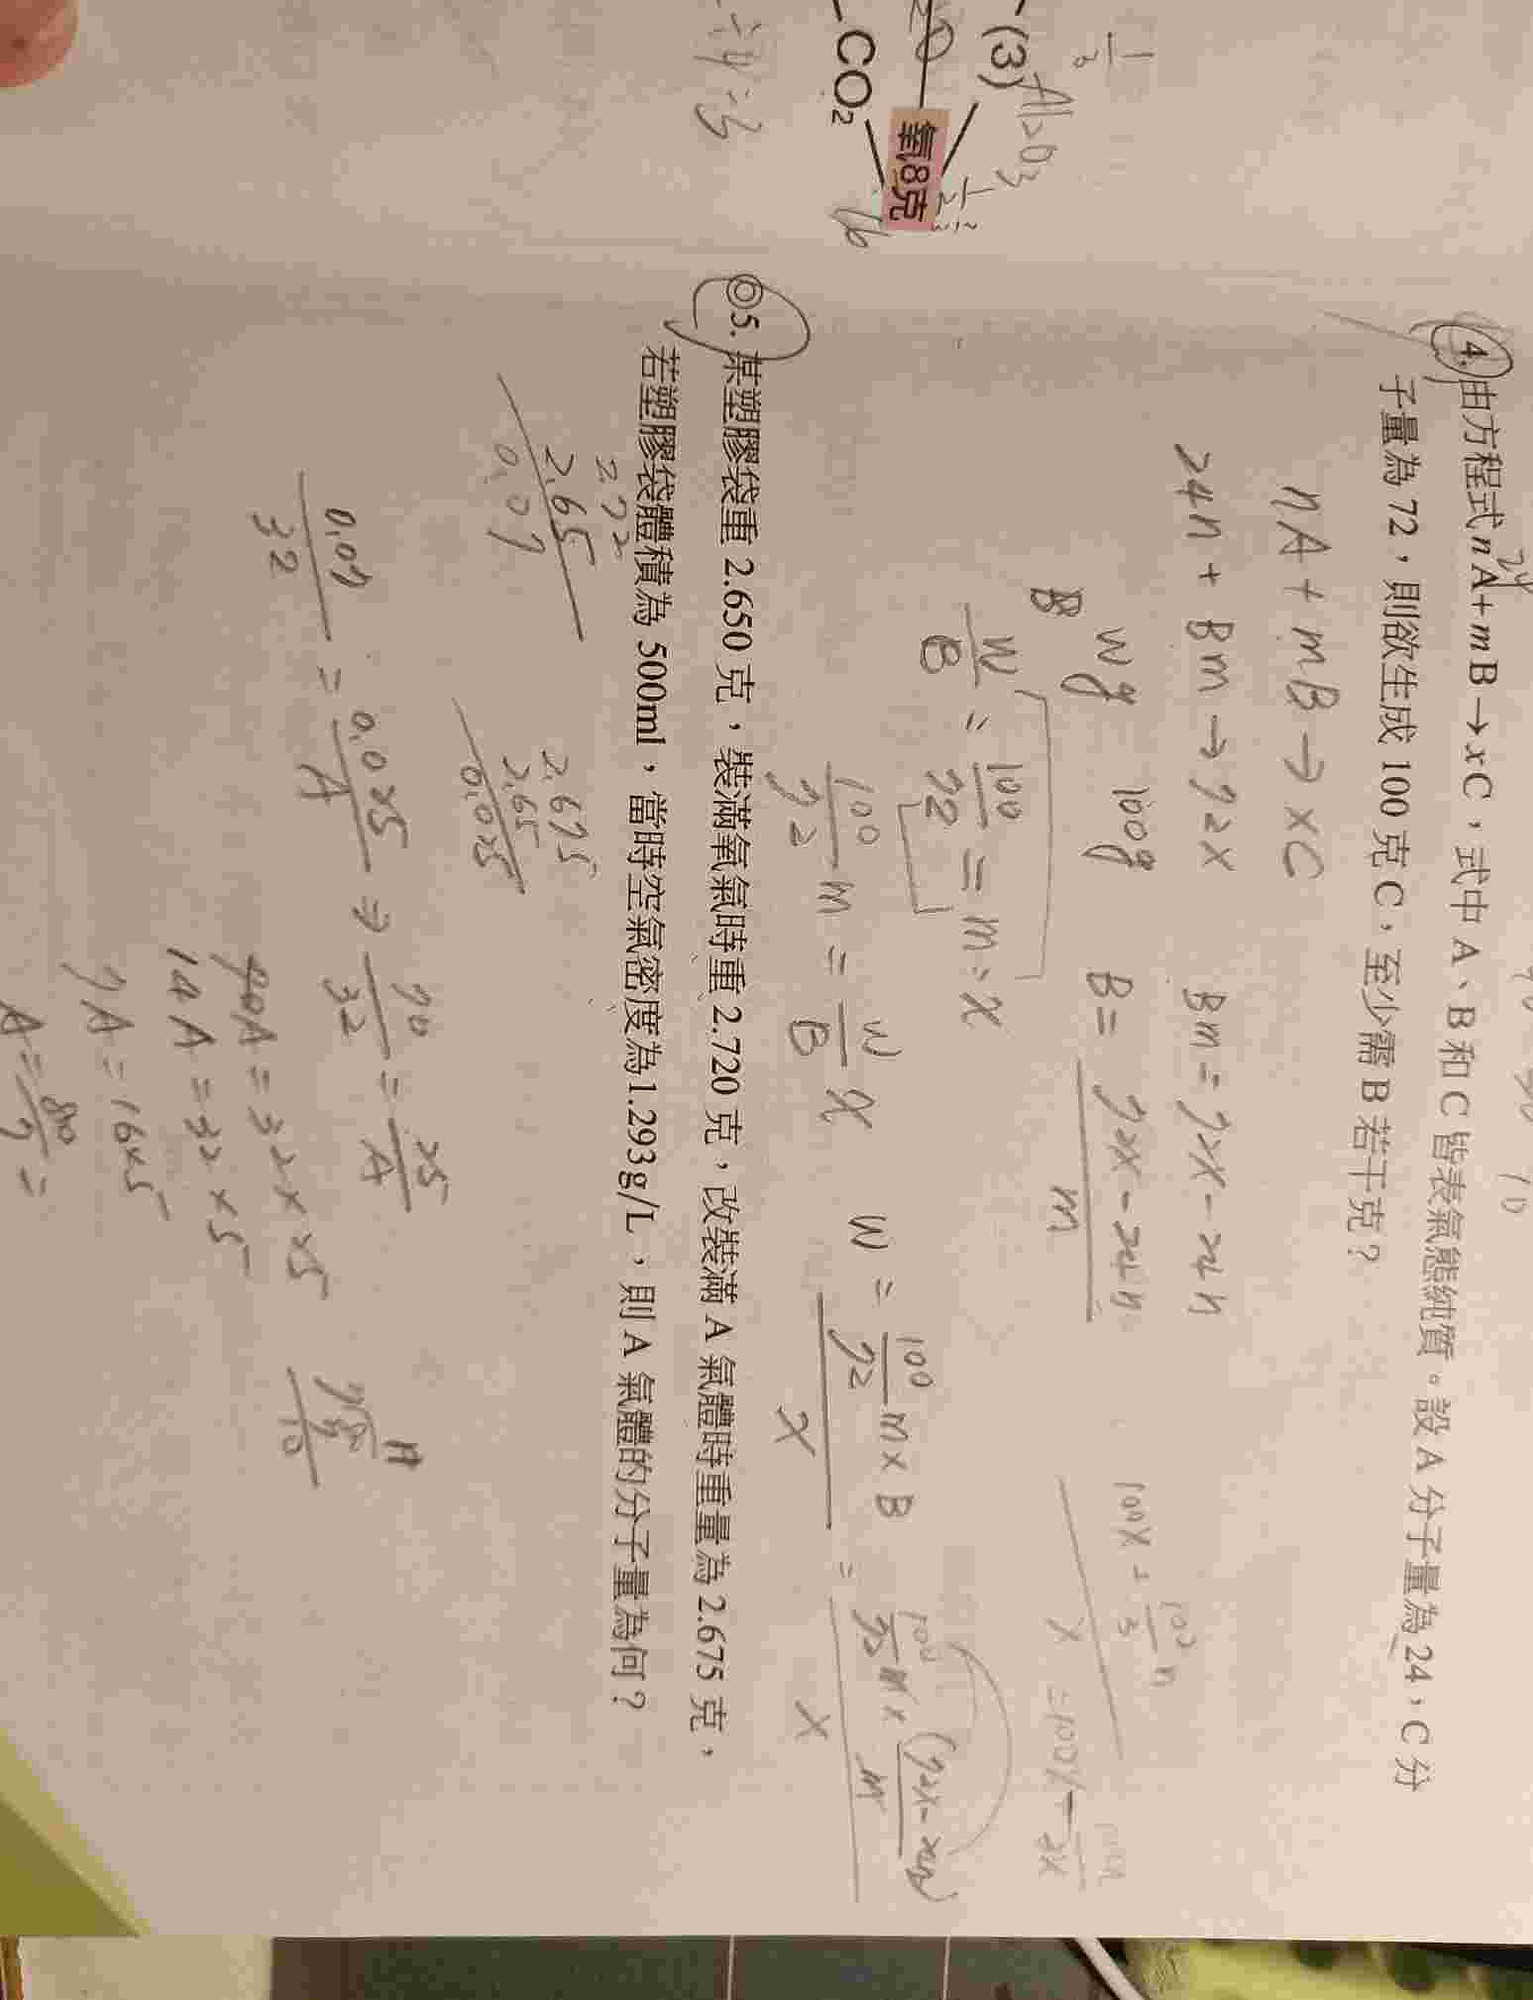 (3)
Al₂O₃
CO₂
氧8克
16
4. 由方程式 nA+mB→xC，式中 A、B 和 C 皆表氣態純質。設 A 分子量為 24，C 分
子量為 72，則欲生成 100 克 C，至少需 B 若干克？
nA + mB → xC
24n + Bm → 72x Bm = 72x - 24n
B wg 100g B = 72x - 24n / m
w/B : 100/72 = m : x
100/72 m = w/B x w = 100/72 m × B / x = 100/72 m × (72x - 24n)/m / x
100x - 100/3 n / x
◎5. 某塑膠袋重 2.650 克，裝滿氧氣時重 2.720 克，改裝滿 A 氣體時重量為 2.675 克，
若塑膠袋體積為 500ml，當時空氣密度為1.293g/L，則 A 氣體的分子量為何？
2.72
2.65
0.07
2.675
2.65
0.025
0.07/32 = 0.025/A ⇒ 70/32 = 25/A
70A = 32 × 25
14A = 32 × 5
7A = 16×5
A = 80/7 =